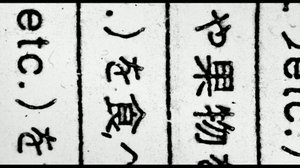 etc.
や果物
.)を食
etc.)を